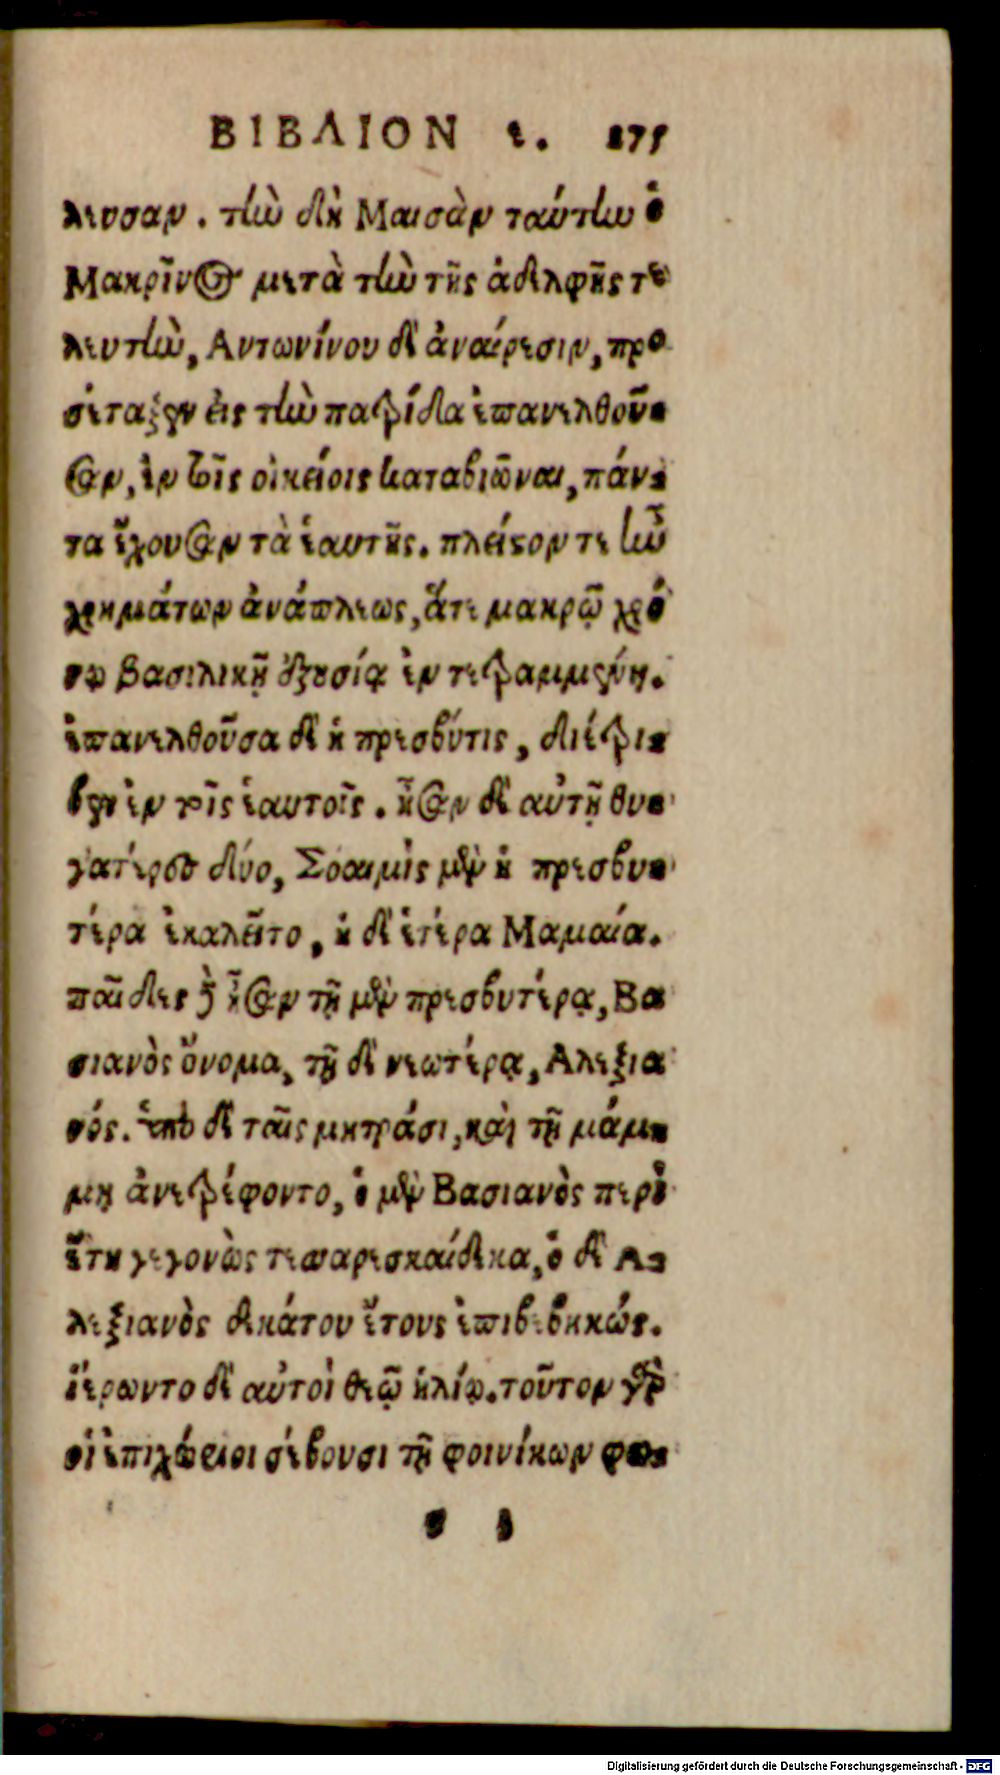 ΒΙΒΛΙΟΝ ε. 275
λευσαν. τὴν δὴ Μαισὰν ταύτην ὁ
Μακρῖνος μετὰ τὴν τῆς ἀδελφῆς τε
λευτὴν, Αντωνίνου δὲ ἀναίρεσιν, προ
σέταξεν εἰς τὴν πατρίδα ἐπανελθοῦ-
σαν, ἐν τοῖς οἰκείοις καταβιῶναι, πάν-
τα ἔχουσαν τὰ ἑαυτῆς. πλεῖστον τε ἦν
χρημάτων ἀνάπλεως, ἅτε μακρῷ χρό
νῳ βασιλικῇ ἐξουσίᾳ ἐντεθραμμένη.
ἐπανελθοῦσα δὲ ἡ πρεσβύτις, διέτρι-
βεν ἐν τοῖς ἑαυτοῖς. ἦσαν δὲ αὐτῇ θυ-
γατέρες δύο, Σόαιμὶς μὲν ἡ πρεσβυ-
τέρα ἐκαλεῖτο, ἡ δὲ ἑτέρα Μαμαία.
παῖδες δὲ ἦσαν τῇ μὲν πρεσβυτέρᾳ, Βα
σιανὸς ὄνομα, τῇ δὲ νεωτέρᾳ, Αλεξια
νός. ὑπὸ δὲ ταῖς μητράσι, καὶ τῇ μάμ-
μῃ ἀνετρέφοντο, ὁ μὲν Βασιανὸς περὶ
ἔτη γεγονὼς τεσσαρεσκαίδεκα, ὁ δὲ Α-
λεξιανὸς δεκάτου ἔτους ἐπιβεβηκώς.
ἱέρωντο δὲ αὐτοὶ θεῷ ἡλίῳ. τοῦτον γὰρ
οἱ ἐπιχώριοι σέβουσι τῇ φοινίκων φω-